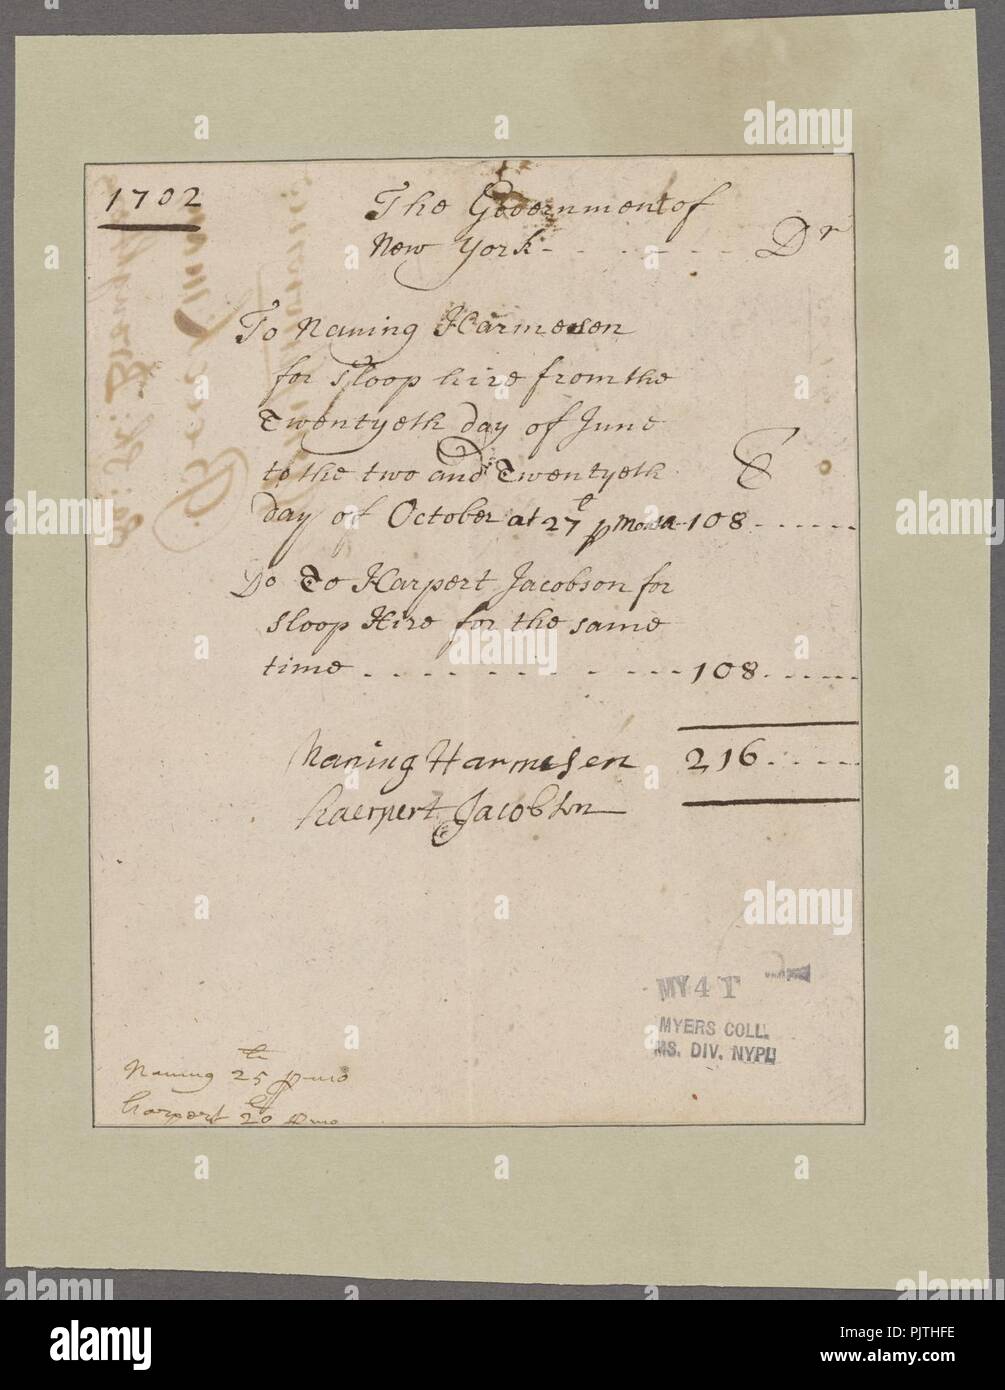 1702
The Government of
New York - - - - - - Dr
To Naning Harmesen
for Sloop hire from the
Twentyeth day of June
to the two and Twentyeth
day of October at 27 £ p 108 - - - - - -
Do To Harpert Jacobson for
Sloop Hire for the same
time - - - - - - - - - - 108 - - - - - -
Naning Harmesen 216 - - - - -
haerpert Jacobson
Naning 25 £ p mo
harpert 20 £ p mo
MY 4 T
MYERS COLL.
MS. DIV. NYPL
alamy
Image ID: PJTHFE
www.alamy.com